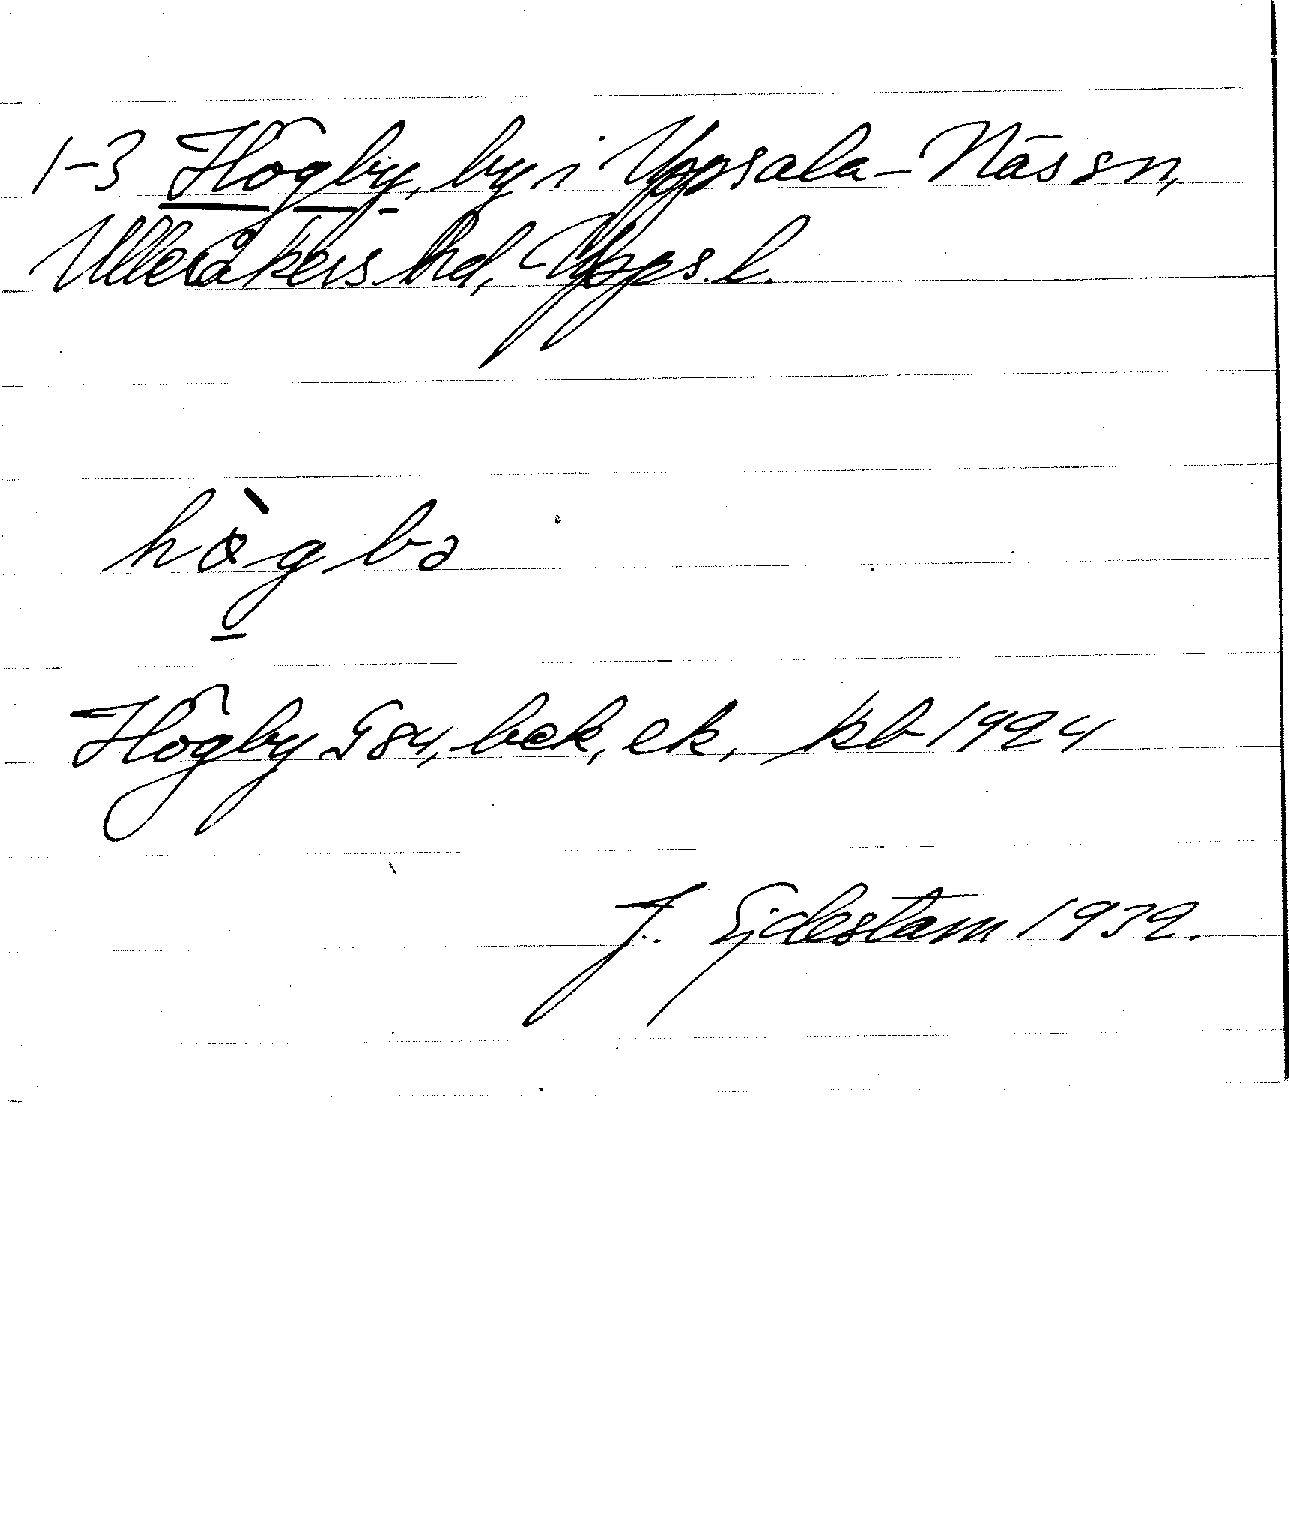 1-3 Högby, by i Uppsala-Näs sn,
Ulleråkers hd, Upps. l.
hö̀gbə
Högby G84, bek, ek, kb 1924
J. Ejdestam 1932.